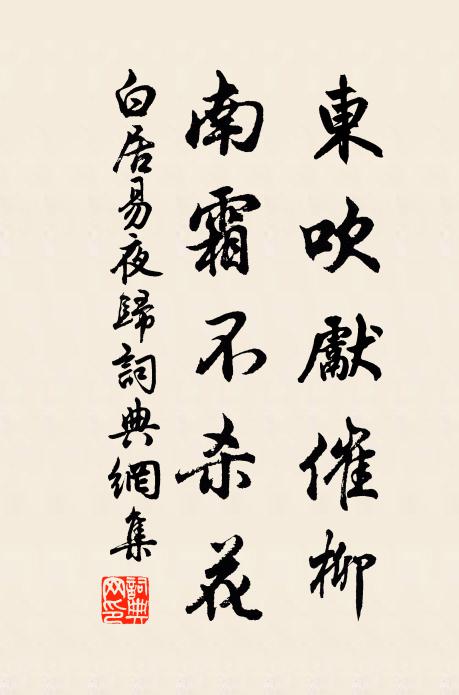 東吹獻催柳
南霜不杀花
白居易夜歸詞典網集
詞典
网印